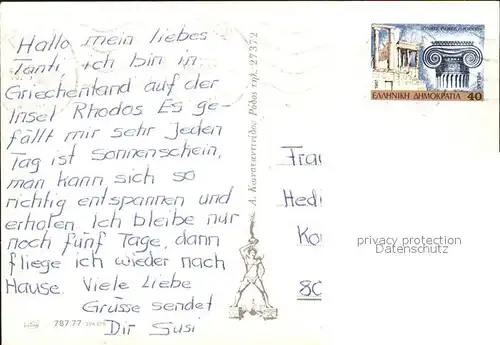 Hallo mein liebes
Tanti, ich bin in
Griechenland auf der
Insel Rhodos. Es ge-
fällt mir sehr. Jeden
Tag ist sonnenschein,
man kann sich so
richtig entspannen und
erholen. Ich bleibe nur
noch fünf Tage, dann
fliege ich wieder nach
Hause. Viele Liebe
Grüsse sendet
Dir Susi
787.77
Α. Κωνσταντινίδου Ρόδος τηλ. 27372
ΕΛΛΗΝΙΚΗ ΔΗΜΟΚΡΑΤΙΑ 40
Frau
Hedi
Ko
80
privacy protection
Datenschutz